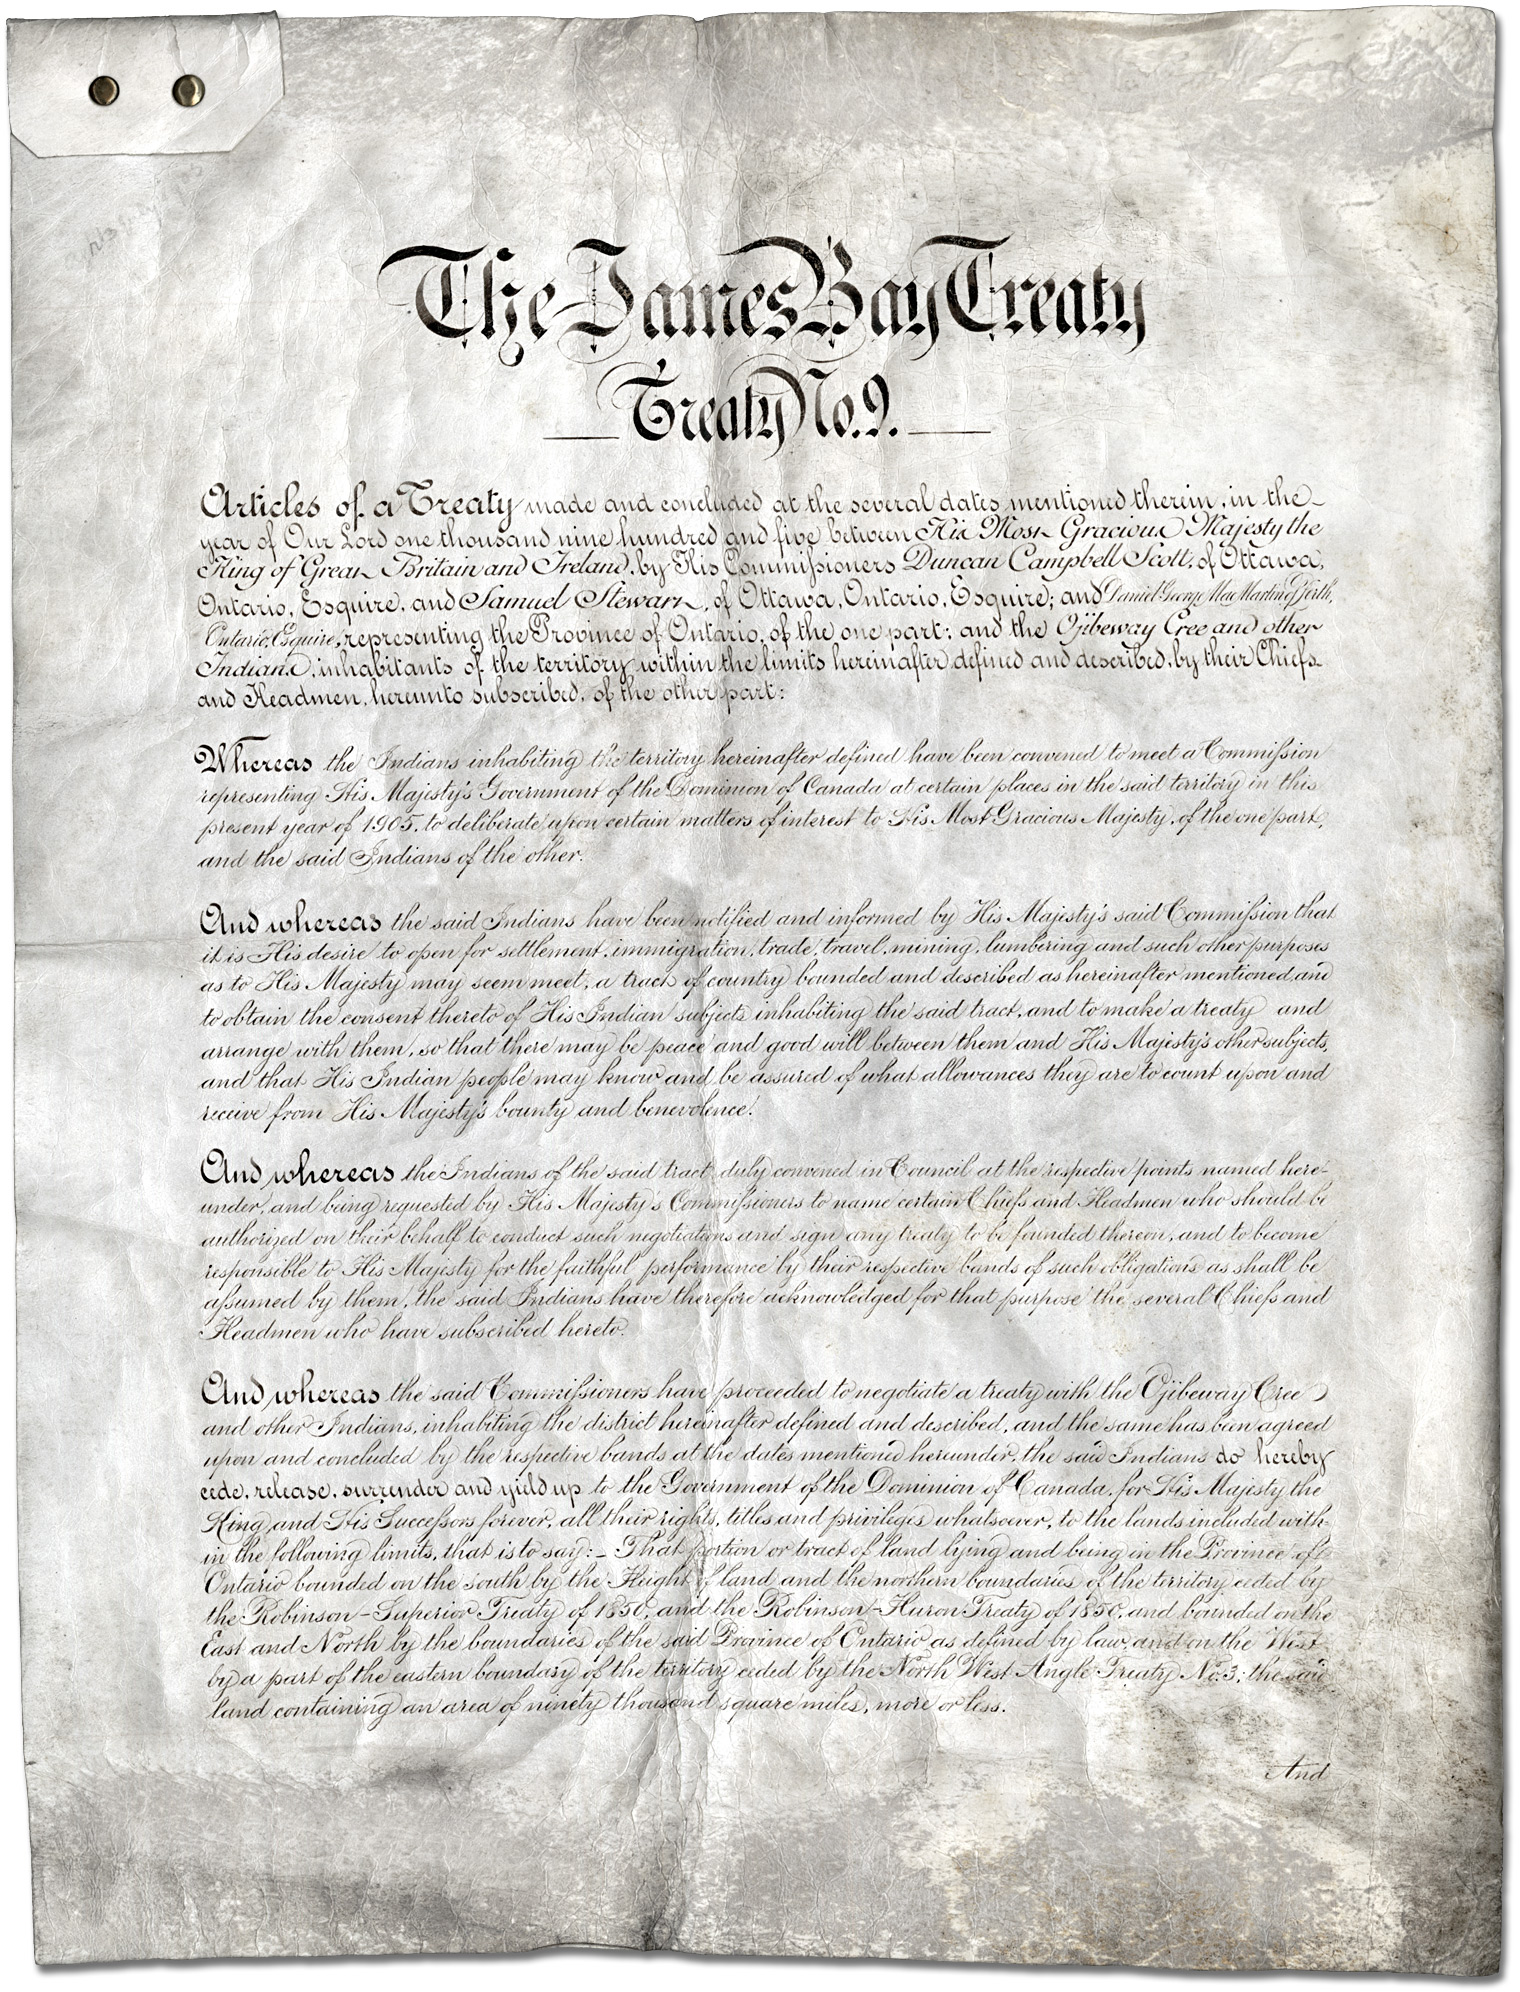 The James Bay Treaty
Treaty No. 9.
Articles of a Treaty made and concluded at the several dates mentioned therein, in the
year of Our Lord one thousand nine hundred and five between His Most Gracious Majesty the
King of Great Britain and Ireland, by His Commissioners Duncan Campbell Scott, of Ottawa,
Ontario, Esquire, and Samuel Stewart, of Ottawa, Ontario, Esquire; and Daniel George MacMartin of Perth,
Ontario, Esquire, representing the Province of Ontario, of the one part; and the Ojibeway Cree and other
Indians, inhabitants of the territory within the limits hereinafter defined and described, by their Chiefs
and Headmen, hereunto subscribed, of the other part:
Whereas the Indians inhabiting the territory hereinafter defined have been convened to meet a Commission
representing His Majesty's Government of the Dominion of Canada at certain places in the said territory in this
present year of 1905, to deliberate upon certain matters of interest to His Most Gracious Majesty, of the one part,
and the said Indians of the other.
And whereas the said Indians have been notified and informed by His Majesty's said Commission that
it is His desire to open for settlement, immigration, trade, travel, mining, lumbering and such other purposes
as to His Majesty may seem meet, a tract of country bounded and described as hereinafter mentioned, and
to obtain the consent thereto of His Indian subjects inhabiting the said tract, and to make a treaty and
arrange with them, so that there may be peace and good will between them and His Majesty's other subjects,
and that His Indian people may know and be assured of what allowances they are to count upon and
receive from His Majesty's bounty and benevolence.
And whereas the Indians of the said tract, duly convened in Council at the respective points named here-
under, and being requested by His Majesty's Commissioners to name certain Chiefs and Headmen who should be
authorized on their behalf to conduct such negotiations and sign any treaty to be founded thereon, and to become
responsible to His Majesty for the faithful performance by their respective bands of such obligations as shall be
assumed by them, the said Indians have therefore acknowledged for that purpose the several Chiefs and
Headmen who have subscribed hereto.
And whereas the said Commissioners have proceeded to negotiate a treaty with the Ojibeway Cree
and other Indians, inhabiting the district hereinafter defined and described, and the same has been agreed
upon and concluded by the respective bands at the dates mentioned hereunder, the said Indians do hereby
cede, release, surrender and yield up to the Government of the Dominion of Canada, for His Majesty the
King and His Successors forever, all their rights, titles and privileges whatsoever, to the lands included with-
in the following limits, that is to say:- That portion or tract of land lying and being in the Province of
Ontario bounded on the south by the Height of land and the northern boundaries of the territory ceded by
the Robinson-Superior Treaty of 1850, and the Robinson-Huron Treaty of 1850, and bounded on the
East and North by the boundaries of the said Province of Ontario as defined by law, and on the West
by a part of the eastern boundary of the territory ceded by the North West Angle Treaty No. 3; the said
land containing an area of ninety thousand square miles, more or less.
And